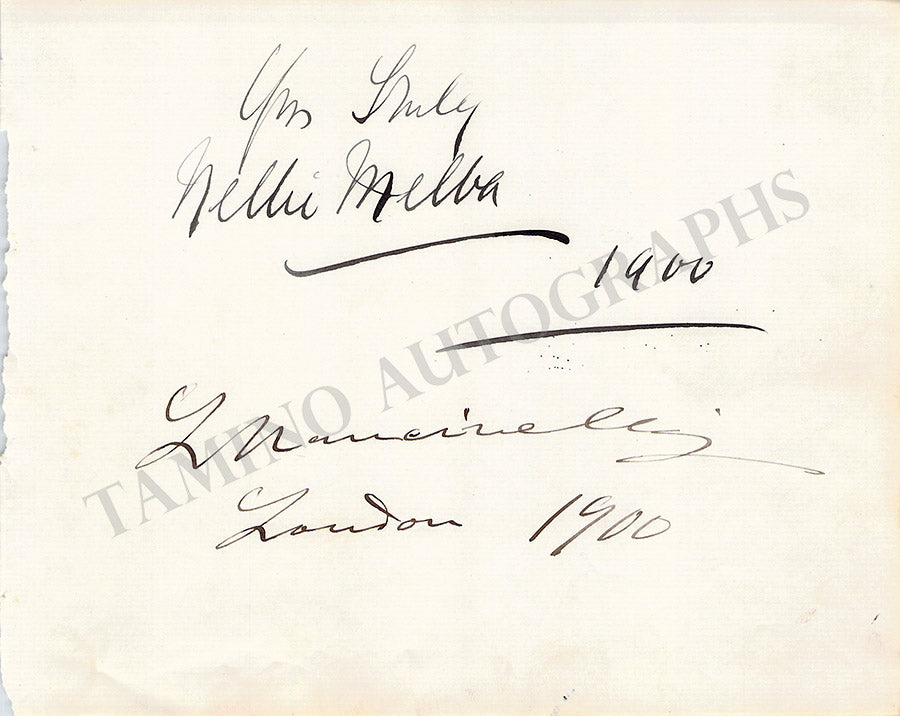 Yrs Truly
Nellie Melba
1900
TAMINO AUTOGRAPHS
L Mancinelli
London 1900